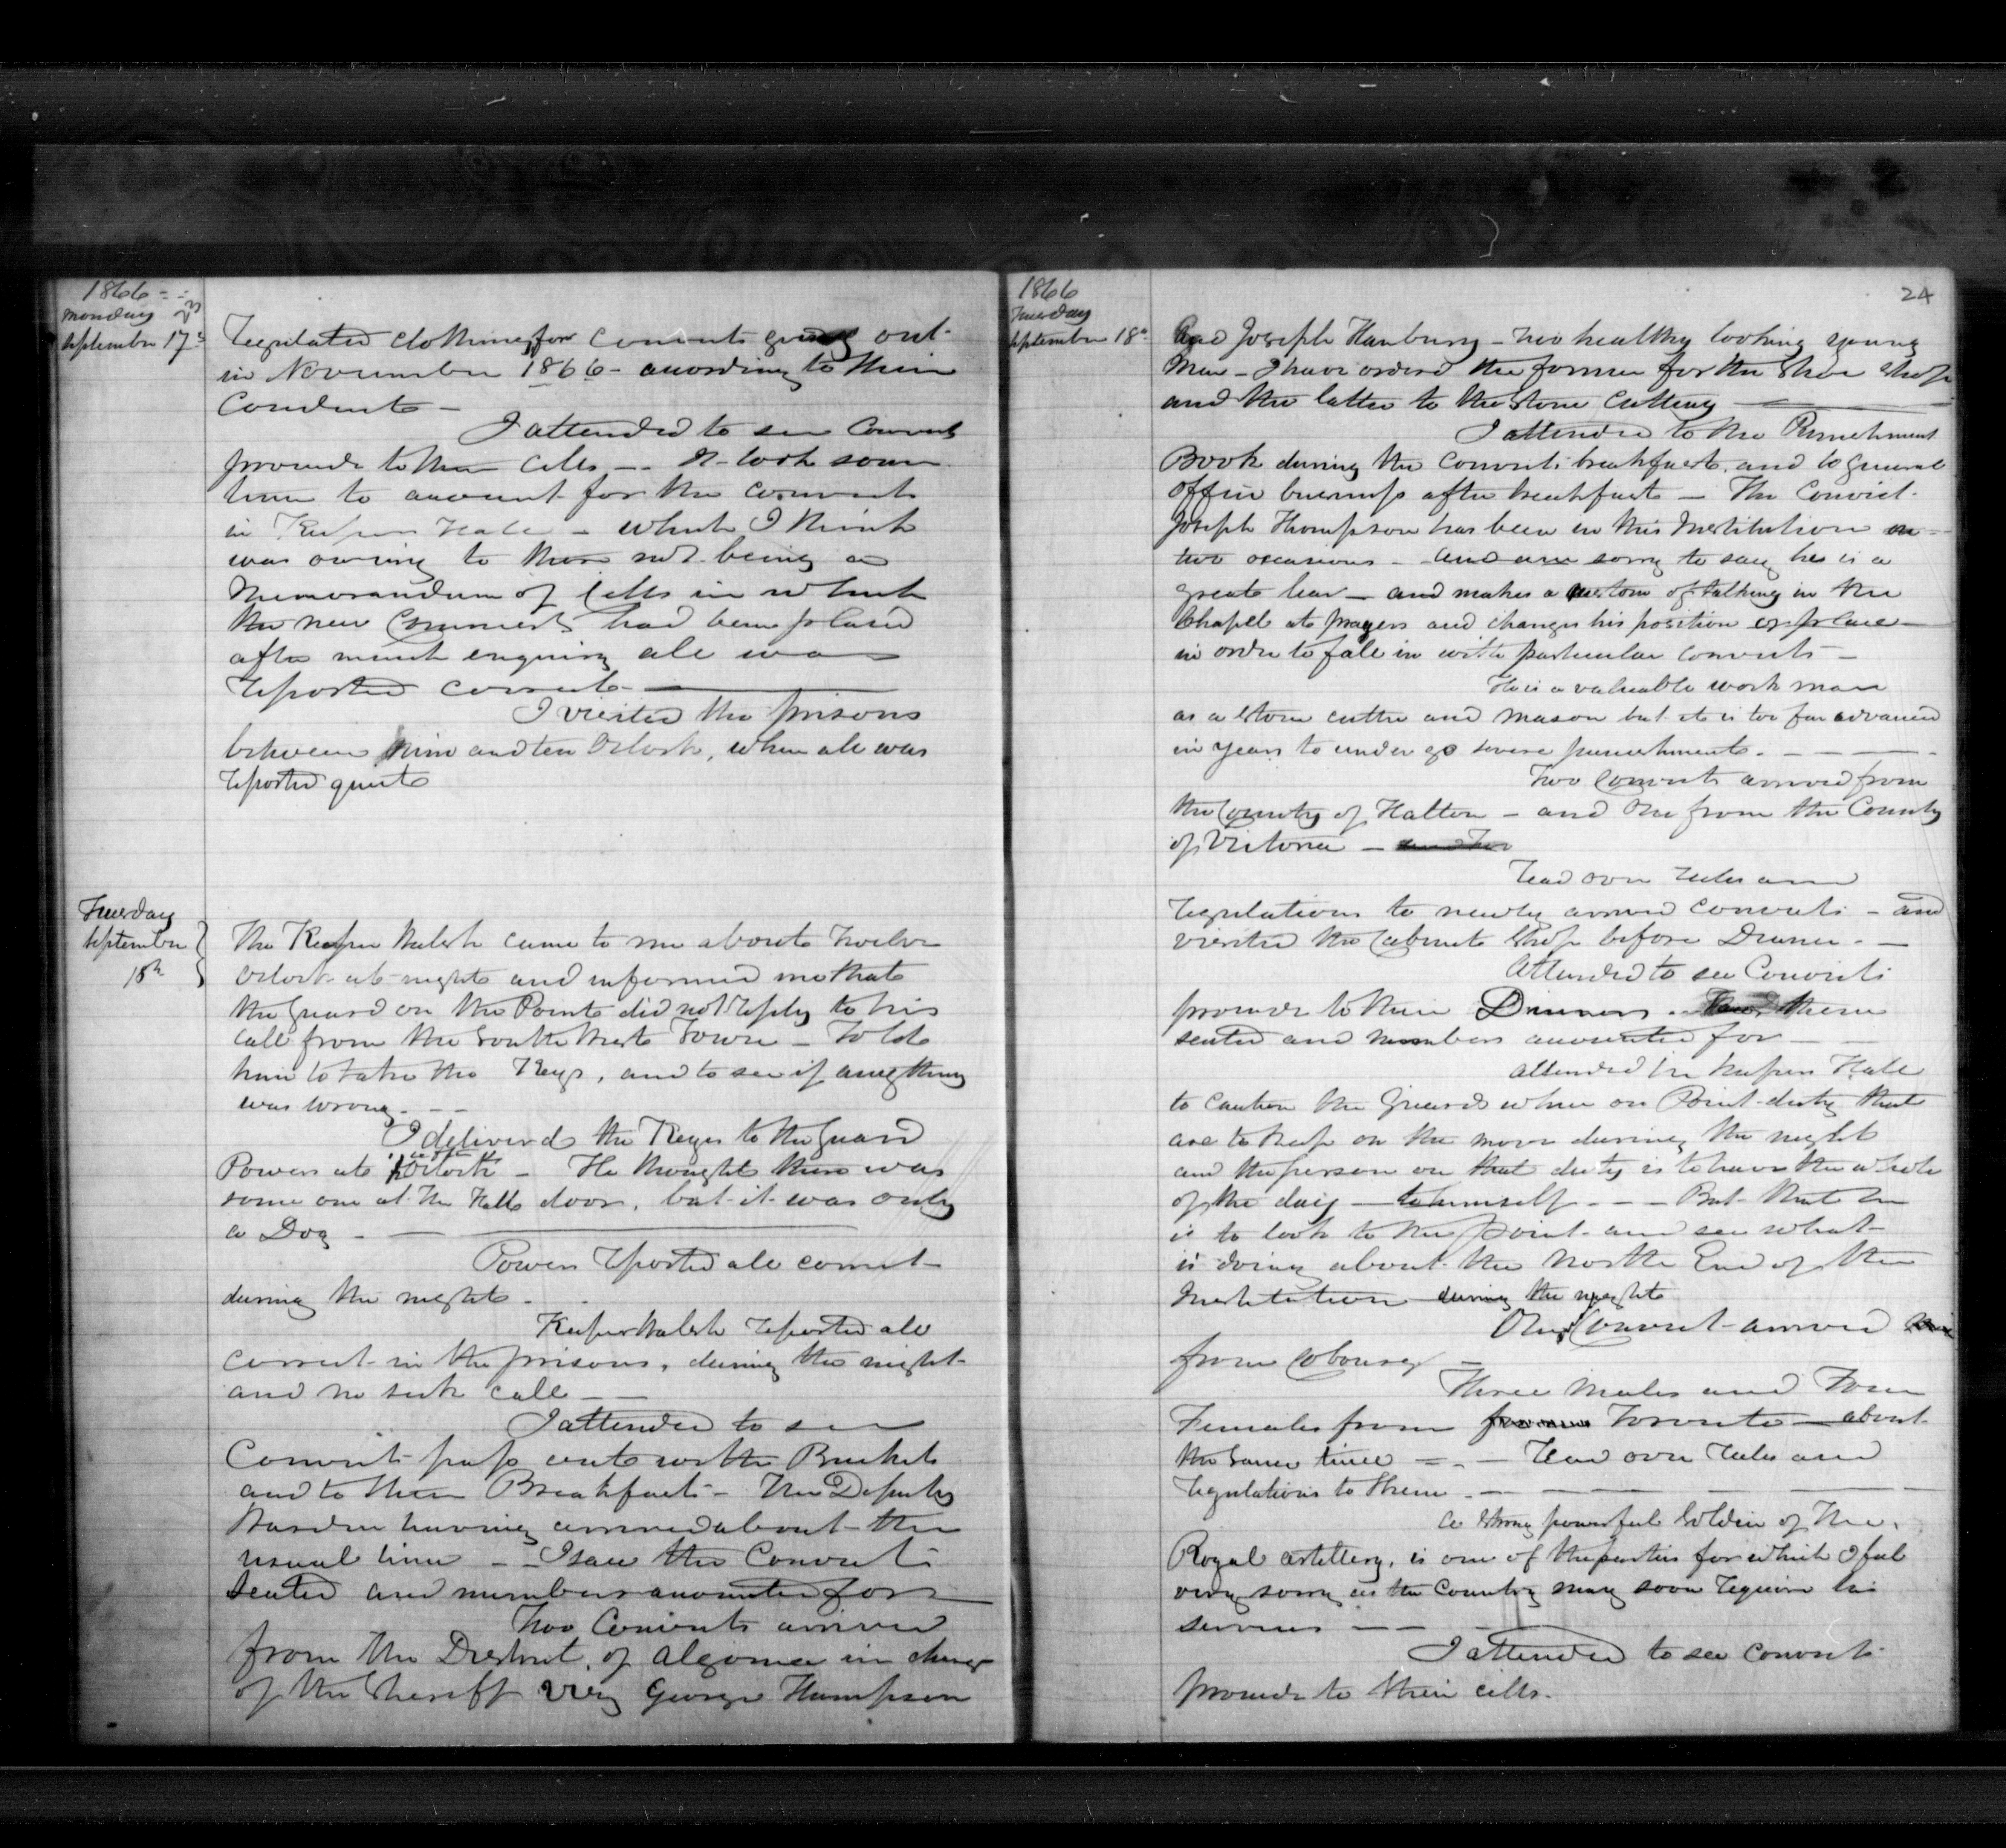 1866
Monday 23
September 17th
Regulated clothing for Convicts going out
in November 1866 - according to their
Conduct -
I attended to see Convicts
proceed to their cells - It took some
time to account for the convicts
in Keepers Hall - which I think
was owing to there not being a
Memorandum of Cells in which
the new Convicts had been placed
after much enquiry all was
reported correct -
I visited the prisons
between nine and ten Oclock, when all was
reported quiet
Tuesday
September
18th
The Keeper Walsh came to me about Twelve
Oclock at night and informed me that
the Guard on the Point did not reply to his
call from the South West Tower - Told
him to take the Keys, and to see if anything
was wrong. - -
I delivered the Keys to the Guard
Powers at Oclock - He thought there was
some one at the Halls door, but it was only
a Dog -
Powers reported all correct
during the night -
Keeper Walsh reported all
correct in the prisons, during the night
and no sick call - -
I attended to see
Convicts pass out with Buckets
and to their Breakfast - The Deputy
Warden having arrived about the
usual time - I saw the Convicts
seated and numbers accounted for
Two Convicts arrived
from the District of Algoma in charge
of the Sheriff viz George Thompson
1866
Tuesday
September 18th
24
And Joseph Hanbury - two healthy looking young
Men - I have ordered the former for the Shoe Shop
and the latter to the Stone Cutting -
I attended to the Punishment
Book during the Convicts breakfast, and to general
office business after breakfast - The Convict
Joseph Thompson has been in this Institution on
two occasions - and am sorry to say he is a
great liar - and makes a custom of talking in the
Chapel at prayers and changes his position or place
in order to fall in with particular convicts -
He is a valuable work man
as a Stone cutter and Mason but it is too far advanced
in years to under go severe punishments. - - -
Two Convicts arrived from
the County of Halton - and One from the County
of Victoria -
Read over rules and
regulations to newly arrived convicts - and
visited the Cabinet Shop before Dinner. -
Attended to see Convicts
proceed to their Dinners. them
seated and numbers accounted for -
Attended in Keepers Hall
to caution the Guards when on Point duty that
are to keep on the move during the night
and the person on that duty is to have the whole
of the day - to himself - - - But that he
is to look to the point and see what
is doing about the North End of the
Institution during the night
One Convict arrived
from Cobourg -
Three Males and Four
Females from Toronto - about
the same time - Read over rules and
regulations to them. -
A strong powerful Soldier of the
Royal Artillery, is one of the parties for which I feel
very sorry as the Country may soon require his
services - -
I attended to see Convicts
proceed to their cells.